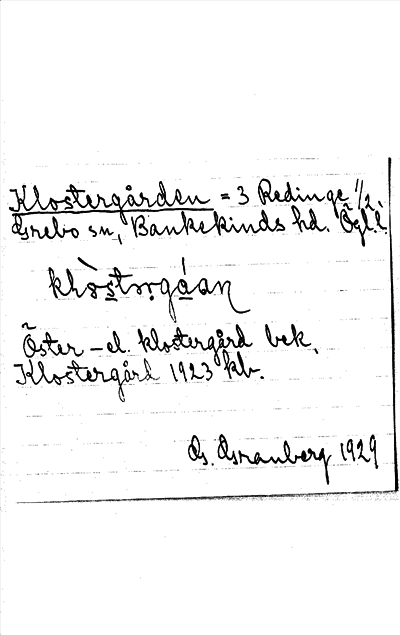 Klostergården = 3 Redinge 1/2.
Grebo sn, Bankekinds hd. Ögl.l.
Öster - el. klostergård bek.
Klostergård 1923 kb.
G. Granberg 1929